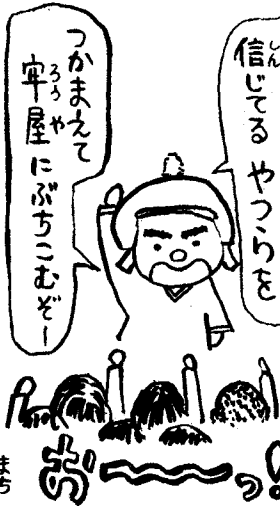 信じてるやつらを
つかまえて
牢屋にぶちこむぞー
お〜〜っ!
まち